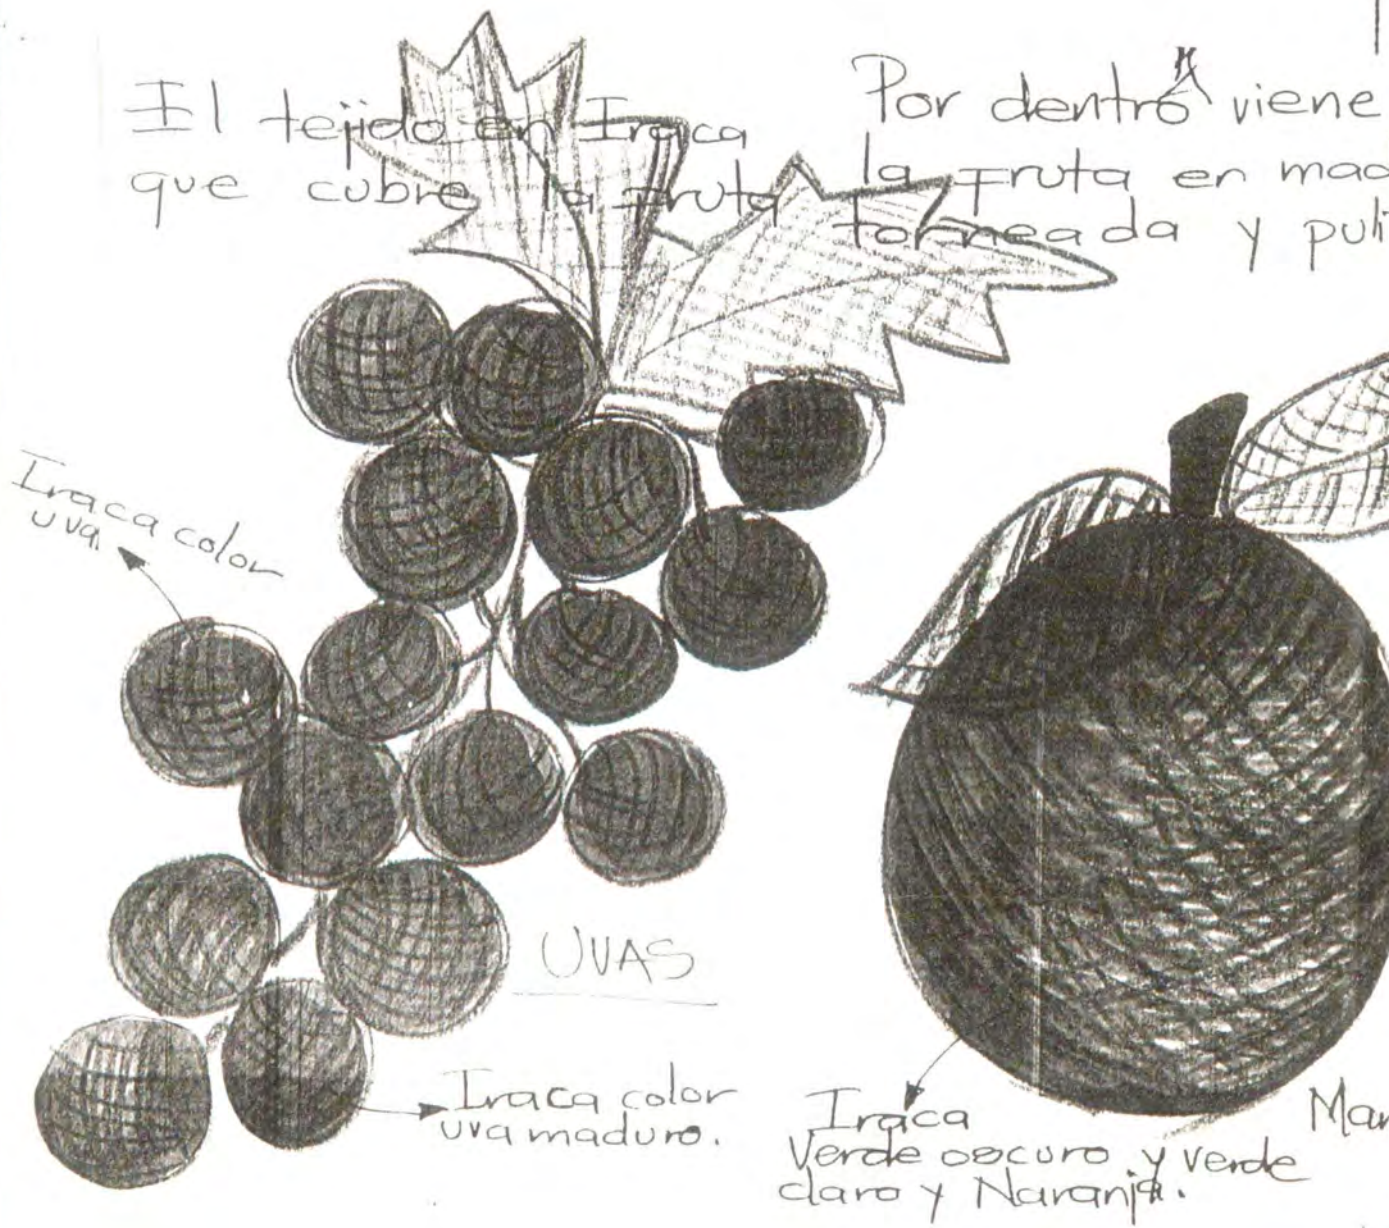 El tejido en Iraca
que cubre la Fruta
Por dentro viene
la Fruta en mad
torneada y puli
Iraca color
uva.
UVAS
Iraca color
uva maduro.
Iraca
Verde oscuro y verde
claro y Naranja.
Man